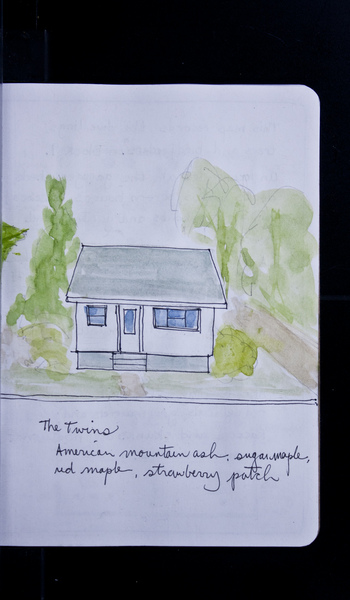 The Twins
American mountain ash, sugar maple,
red maple, strawberry patch